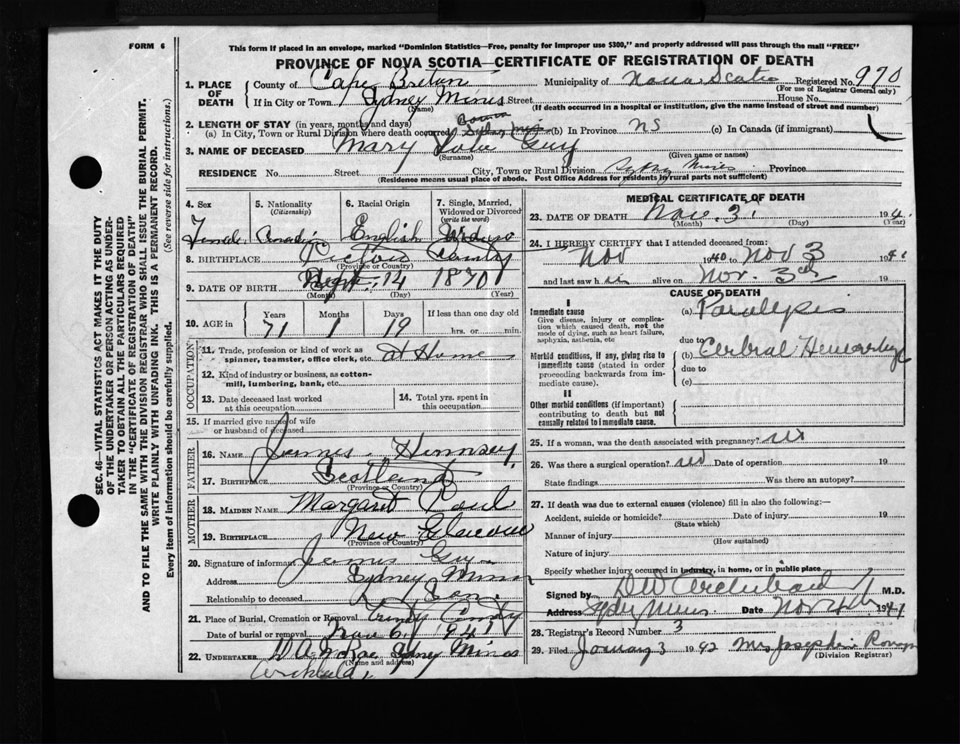 FORM 6
This form if placed in an envelope, marked "Dominion Statistics—Free, penalty for improper use $300," and properly addressed will pass through the mail "FREE"
PROVINCE OF NOVA SCOTIA—CERTIFICATE OF REGISTRATION OF DEATH
1. PLACE OF DEATH County of Cape Breton Municipality of Nova Scotia Registered No. 970
(For use of Registrar General only)
If in City or Town Sydney Mines Street House No.
(Name) (If death occurred in a hospital or institution, give the name instead of street and number)
2. LENGTH OF STAY (in years, months and days)
(a) In City, Town or Rural Division where death occurred (b) In Province NS (c) In Canada (if immigrant)
3. NAME OF DECEASED Mary Guy
(Surname) (Given name or names)
RESIDENCE No. Street City, Town or Rural Division Sydney Mines Province
(Residence means usual place of abode. Post Office Address for residents in rural parts not sufficient)
4. Sex Female
5. Nationality (Citizenship) Canadian
6. Racial Origin English
7. Single, Married, Widowed or Divorced (write the word) Widow
8. BIRTHPLACE Pictou County
(Province or Country)
9. DATE OF BIRTH Sept. 14 1870
(Month) (Day) (Year)
10. AGE in Years Months Days If less than one day old
71 1 19 hrs. or min.
OCCUPATION
11. Trade, profession or kind of work as spinner, teamster, office clerk, etc. at Home
12. Kind of industry or business, as cotton-mill, lumbering, bank, etc.
13. Date deceased last worked at this occupation
14. Total yrs. spent in this occupation
15. If married give name of wife or husband of deceased
FATHER
16. NAME James
17. BIRTHPLACE Scotland
(Province or Country)
MOTHER
18. MAIDEN NAME Margaret
19. BIRTHPLACE New Glasgow
(Province or Country)
20. Signature of informant James Guy
Address Sydney Mines
Relationship to deceased Son
21. Place of Burial, Cremation or Removal Trinity
Date of burial or removal Nov 6 1941
22. UNDERTAKER Sydney Mines
(Name and address)
MEDICAL CERTIFICATE OF DEATH
23. DATE OF DEATH Nov. 3. 1941
(Month) (Day)
24. I HEREBY CERTIFY that I attended deceased from:
Nov 1940 to Nov 3 1941
and last saw h alive on Nov. 3rd 19
CAUSE OF DEATH
I
Immediate cause
Give disease, injury or complication which caused death, not the mode of dying, such as heart failure, asphyxia, asthenia, etc
(a) Paralysis
due to
Morbid conditions, if any, giving rise to immediate cause (stated in order proceeding backwards from immediate cause).
(b) Cerebral Hemorrhage
due to
(c)
II
Other morbid conditions (if important) contributing to death but not causally related to immediate cause.
25. If a woman, was the death associated with pregnancy? no
26. Was there a surgical operation? no Date of operation 19
State findings Was there an autopsy?
27. If death was due to external causes (violence) fill in also the following:—
Accident, suicide or homicide? Date of injury 19
(State which)
Manner of injury
(How sustained)
Nature of injury
Specify whether injury occurred in industry, in home, or in public place
Signed by DW Archibald M.D.
Address Sydney Mines Date Nov 4th 1941
28. Registrar's Record Number 3
29. Filed January 3 1942 Mrs Josephine
(Division Registrar)
SEC. 46—VITAL STATISTICS ACT MAKES IT THE DUTY OF THE UNDERTAKER OR PERSON ACTING AS UNDERTAKER TO OBTAIN ALL THE PARTICULARS REQUIRED IN THE "CERTIFICATE OF REGISTRATION OF DEATH" AND TO FILE THE SAME WITH THE DIVISION REGISTRAR WHO SHALL ISSUE THE BURIAL PERMIT.
WRITE PLAINLY WITH UNFADING INK. THIS IS A PERMANENT RECORD.
Every item of information should be carefully supplied. (See reverse side for instructions.)